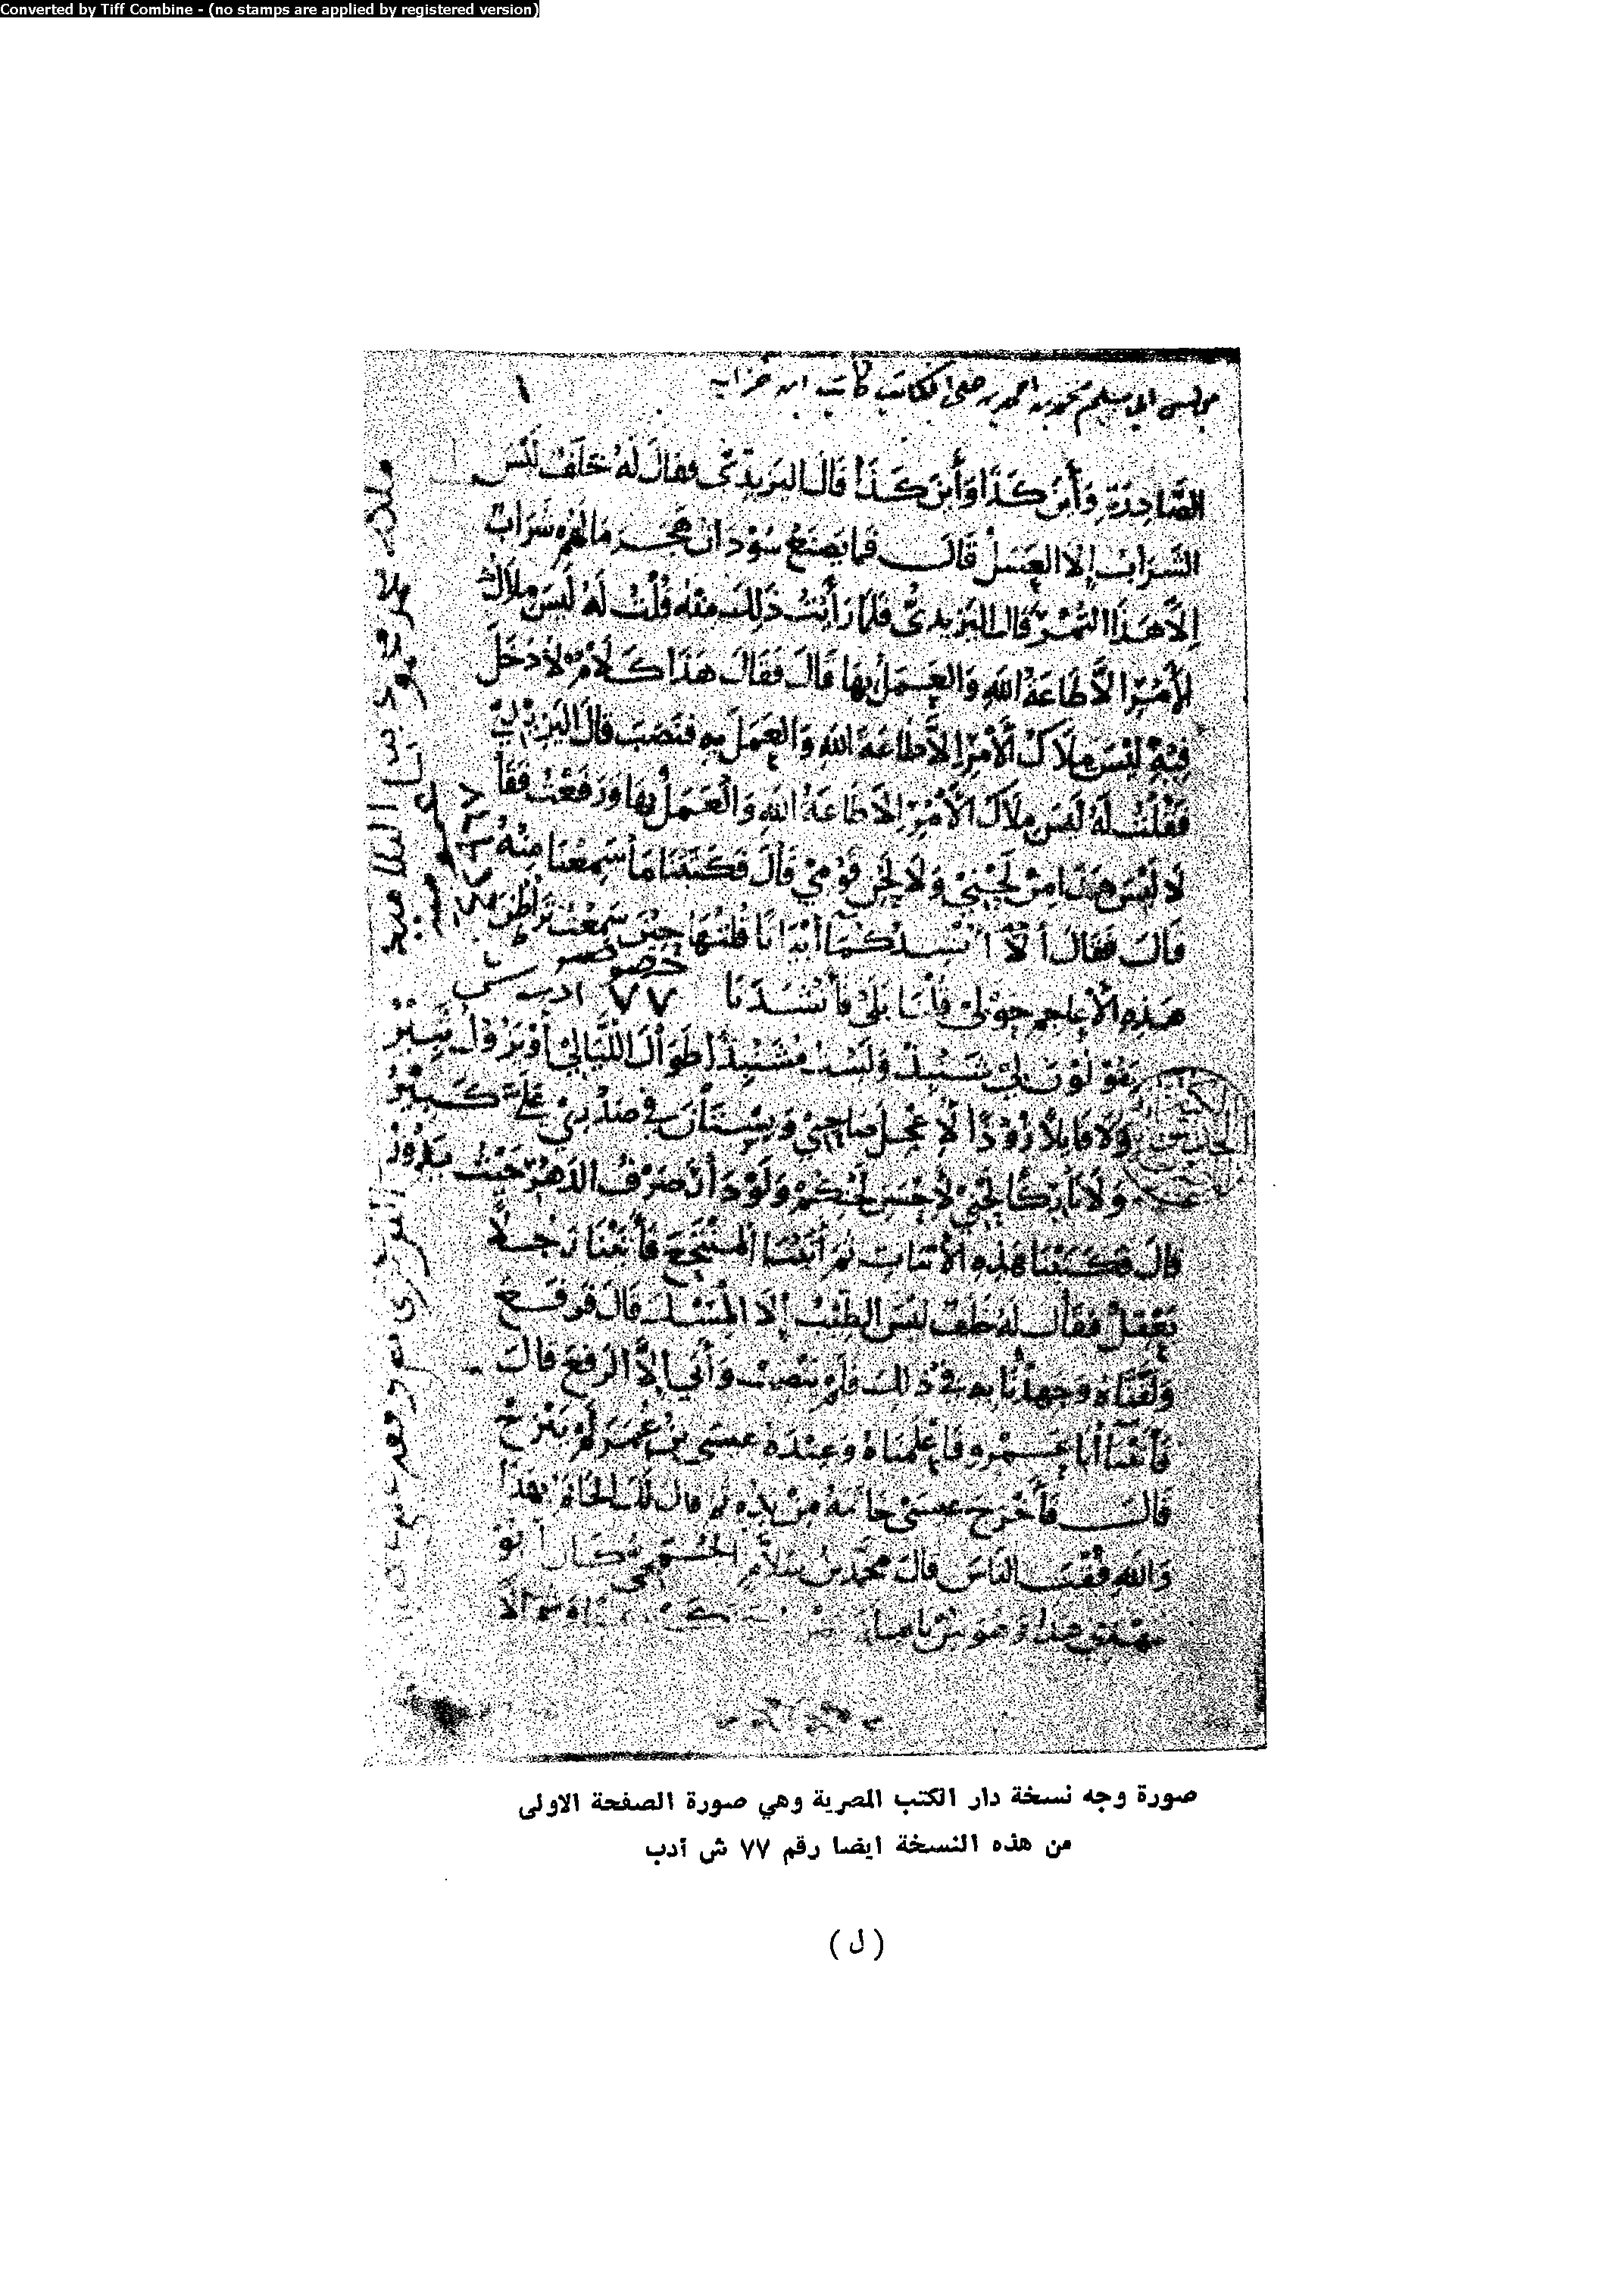 Converted by Tiff Combine - (no stamps are applied by registered version)
مجالس ابي مسلم محمد بن احمد بن علي الكاتب كاتب ابن حنزابه ١
الصَّادِرَةِ وَأَيْنَ كَذَا وَأَيْنَ كَذَا قَالَ اليَزِيدِيُّ فقالَ لَهُ خَلَفٌ لَيْسَ
الشَرابُ إلَّا العَسَلُ قَالَ فَما يَصنَعُ سُودَانُ هَجَرٍ مَا لَهُمْ شَرَابٌ
إلَّا هَذَا التَّمْرَ قَالَ اليَزِيدِيُّ فَلَمَّا رَأَيْتُ ذَلِكَ مِنْهُ قُلْتُ لَهُ لَيْسَ مِلَاكُ
الأَمْرِ إلَّا طَاعَةُ اللهِ وَالعَمَلُ بِهَا قَالَ فَقَالَ هَذَا كَلَامٌ لَا دَخَلَ
فِيْهِ لَيْسَ مِلَاكُ الأَمْرِ إلَّا طَاعَةَ اللهِ وَالعَمَلَ بها فَنَصَبَ قَالَ اليَزِيْدِيُّ
فَقُلْتُ لَهُ لَيْسَ مِلَاكُ الأَمْرِ إلَّا طَاعَةُ اللهِ وَالعَمَلُ بِهَا وَرَفَعْتُ فَقَالَ
لَا لَيْسَ هَذَا مِنْ لَحْنِيْ وَلَا لَحْنِ قَوْمِيْ قَالَ فَكَتَبْنَا مَا سَمِعْنَا مِنْهُ
قَالَ فَقَالَ أَلَا أُنْشِدُكُمَا أَبْيَاتًا قُلْتُهَا حِيْنَ سَمِعْتُ تَرَاطُنَ
هَذِهِ الأَعَاجِمِ حَوْلِيْ قُلْنَا بَلَى فَأَنْشَدَنَا
خصو
٧٧ ادب ش
يَقُولُونَ لِيْ شَنْبِذْ وَلَسْتُ مُشَنْبِذًا طَوَالَ اللَّيَالِيْ أَوْ يَزُوْلَ ثَبِيْرُ
وَلَا قَائِلًا زُوْدًا لِأُعْجِلَ صَاحِبِيْ وَبِسْتَانُ فِيْ صَدْرِيْ عَلَيَّ كَبِيْرُ
وَلَا تَارِكًا لَحْنِيْ لِأُحْسِنَ لَحْنَكُمْ وَلَوْ دَارَ صَرْفُ الدَّهْرِ حَيْثُ يَدُوْرُ
قَالَ فَكَتَبْنَا هَذِهِ الأَبْيَاتَ ثُمَّ أَتَيْنَا المُنْتَجِعَ فَأَتَيْنَا رَجُلًا
يَعْقِلُ فَقَالَ لَهُ خَلَفٌ لَيْسَ الطِّيْبُ إلَّا المِسْكَ قَالَ فَرَفَعَ
وَلَقَّنَّاهُ وَجَهَدْنَا بِهِ فِيْ ذَلِكَ فَلَمْ يَنْصِبْ وَأَبَى إلَّا الرَّفْعَ قَالَ
فَأَتَيْنَا أَبَا عَمْرٍو فَأَعْلَمْنَاهُ وَعِنْدَهُ عِيْسَى بْنُ عُمَرَ لَمْ يَبْرَحْ
قَالَ فَأَخْرَجَ عِيْسَى خَاتَمَهُ مِنْ يَدِهِ ثُمَّ قَالَ لَكَ الخَاتَمُ بِهَذَا
وَاللهِ فُقْتَ النَّاسَ قَالَ مُحَمَّدُ بْنُ سَلَّامٍ الجُمَحِيُّ كَانَ أَبُو
صورة وجه نسخة دار الكتب المصرية وهي صورة الصفحة الاولى
من هذه النسخة ايضا رقم ٧٧ ش أدب
( ل )